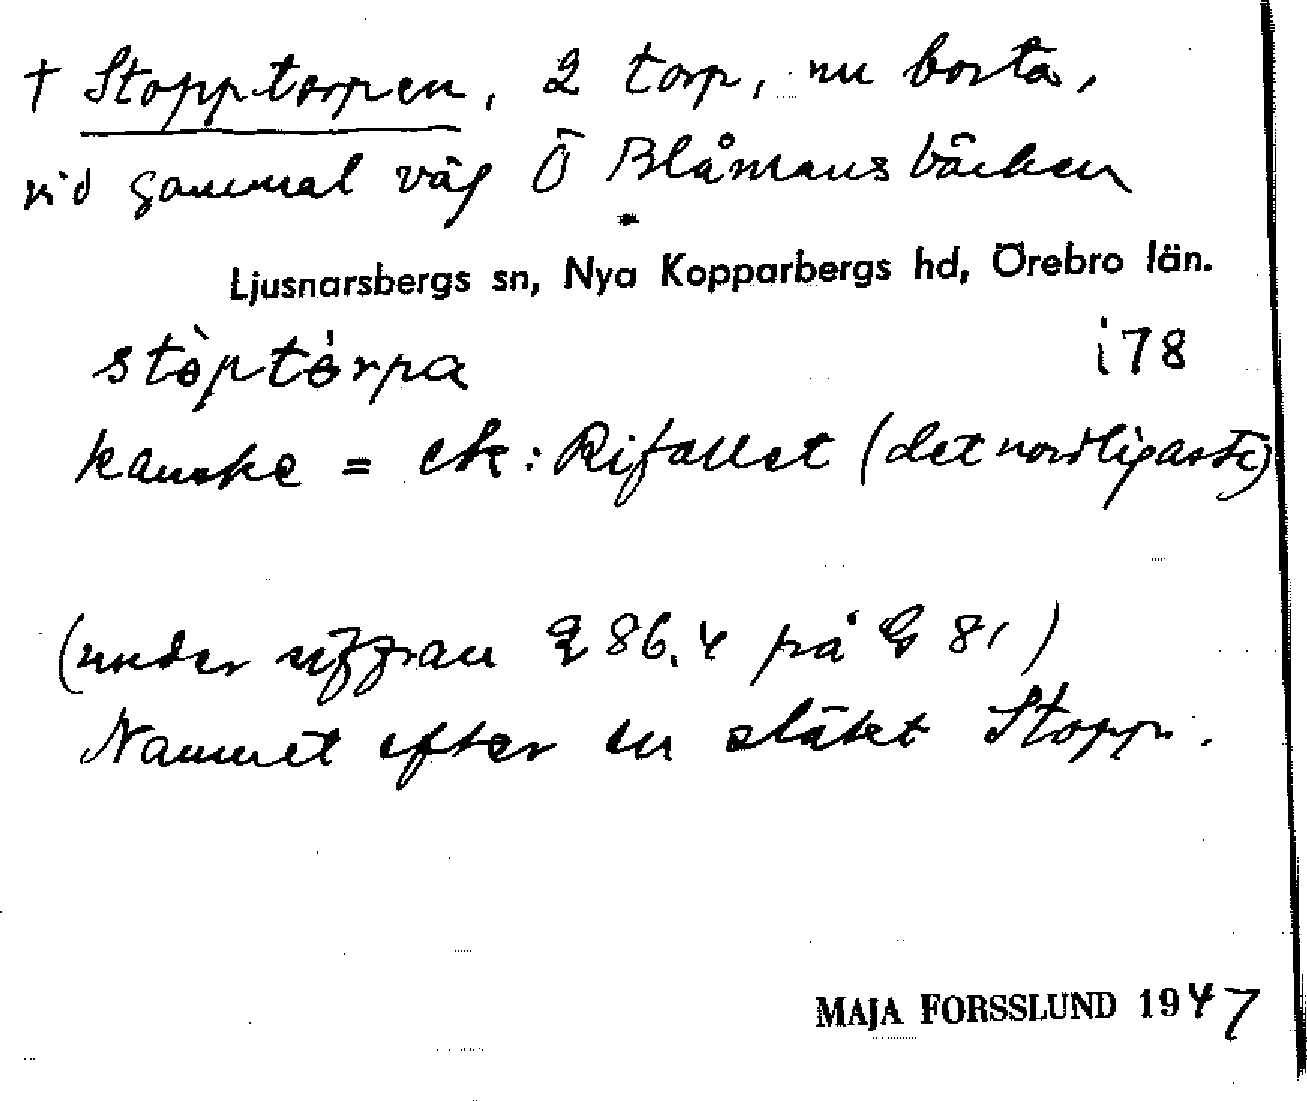 † Stopptorpen, 2 torp, nu borta,
vid gammal väg Ö Blåmansbäcken
Ljusnarsbergs sn, Nya Kopparbergs hd, Örebro län.
stòptórpa i78
kanske = ek: Rifallet (det nordligaste)
(under siffran 286.4 på G 81)
Namnet efter en släkt Stopp.
MAJA FORSSLUND 1947